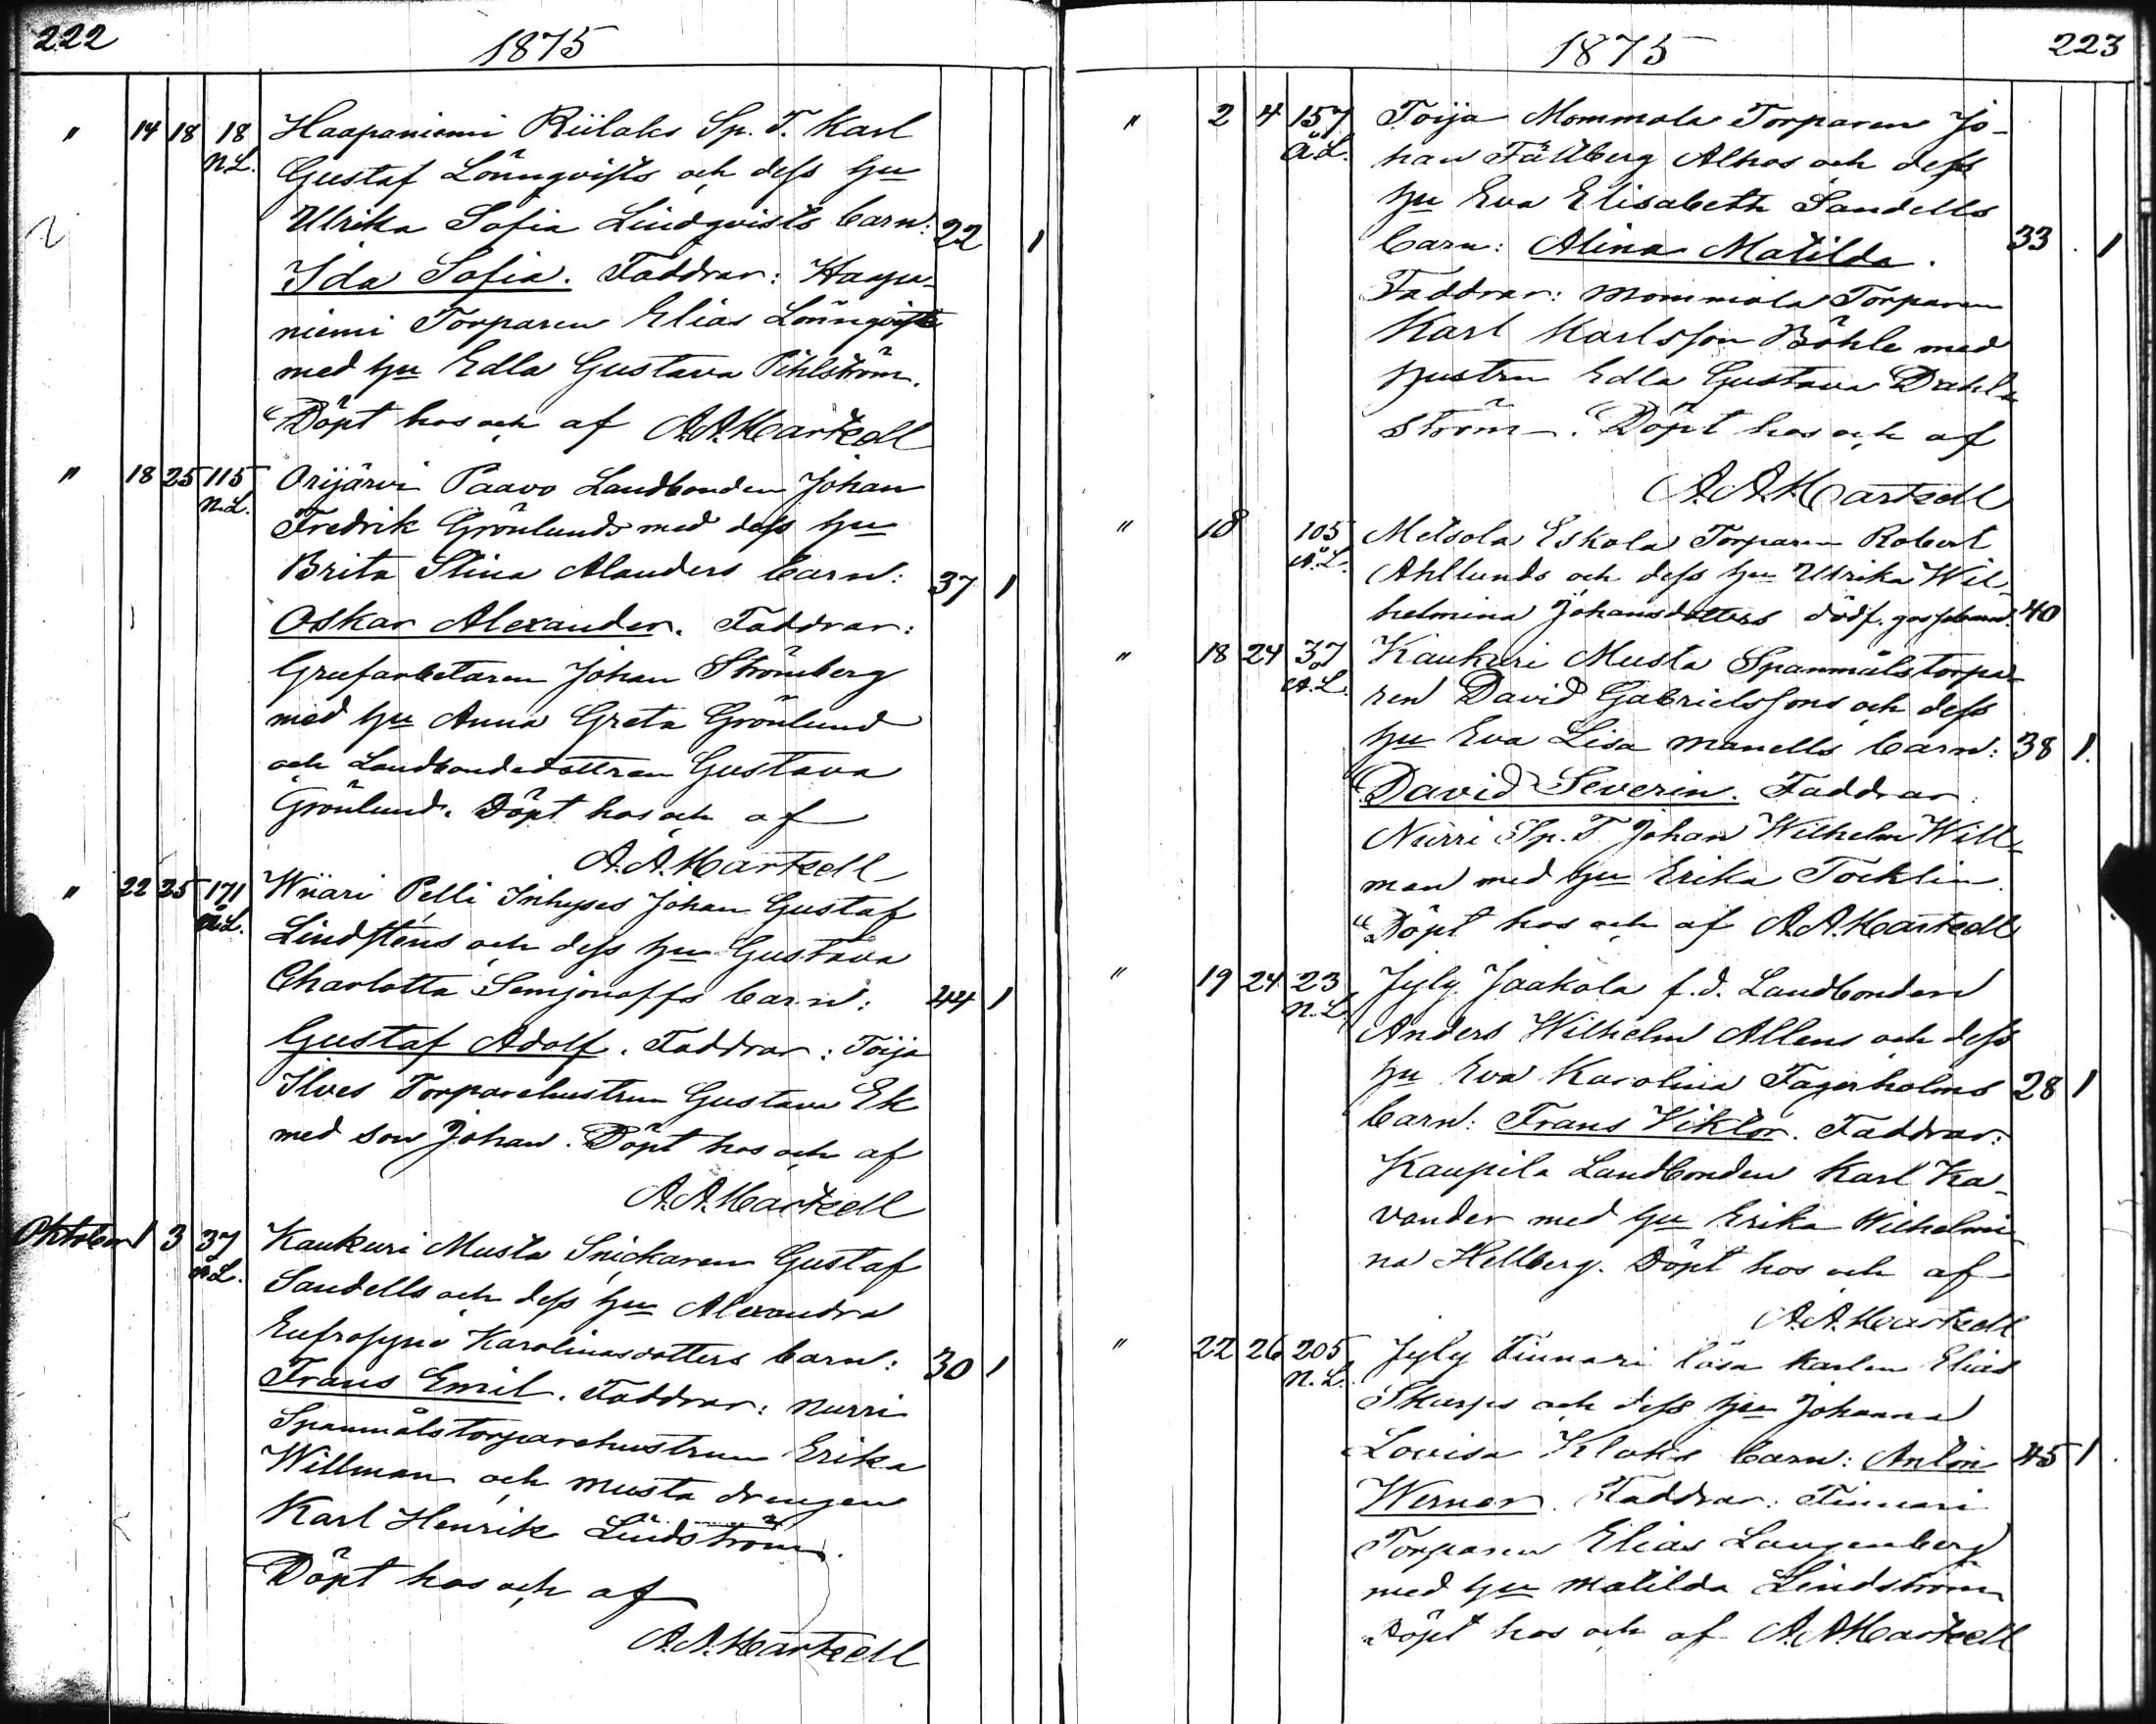 222
1875
" 14 18 18 Haapaniemi Riilaks Sp. T. Karl
N.L. Gustaf Lönnqvists och dess hu
Ulrika Sofia Lindqvists barn: 22 1
Ida Sofia. Faddrar: Haapa-
niemi Torparen Elias Lönnqvist
med hu Edla Gustava Pihlström.
Döpt hos och af A.A.Hartzell
" 18 25 115 Orijärvi Paavo Landbonden Johan
N.L. Fredrik Grönlunds med dess hu
Brita Stina Alanders barn: 37 1
Oskar Alexander. Faddrar:
Grufarbetaren Johan Strömberg
med hu Anna Greta Grönlund
och Landbondedottren Gustava
Grönlund. Döpt hos och af
A.A.Hartzell
" 22 25 171 Wiiari Pelli Inhyses Johan Gustaf
Lindsténs och dess hu Gustava
Charlotta Semjonoffs barn: 44 1
Gustaf Adolf. Faddrar: Toija
Ilves Torparehustrun Gustava Ek
med son Johan. Döpt hos och af
A.A.Hartzell
Oktober 1 3 37 Kaukuri Musta Snickaren Gustaf
Sandells och dess hu Alexandra
Eufrosyne Karolinasdotters barn: 30 1
Frans Emil. Faddrar: Nurri
Spanmålstorparehustrun Erika
Willman och Musta drengen
Karl Henrik Lindström.
Döpt hos och af
A.A.Hartzell
1875
223
" 2 4 157 Toija Mommola Torparen Jo-
Ä.L. han Fällberg Alhos och dess
hu Eva Elisabeth Sandells
barn: Alina Matilda. 33 1
Faddrar: Mommola Torparen
Karl Karlsson Böhle med
hustru Edla Gustava Dahl-
ström. Döpt hos och af
A.A.Hartzell
" 18 105 Metsola Eskola Torparen Robert
Ä.L. Ahllunds och dess hu Ulrika Wil-
helmina Johansdotters dödf. gossebarn. 40
" 18 24 37 Kaukuri Musta Spanmålstorpa-
Ä.L. ren David Gabrielssons och dess
hu Eva Lisa Manells barn: 38 1.
David Severin. Faddrar:
Nurri Sp. T. Johan Wilhelm Will-
man med hu Erika Tocklin.
Döpt hos och af A.A.Hartzell
" 19 24 23 Jyly Jaakola f.d. Landbonden
N.L. Anders Wilhelm Allens och dess
hu Eva Karolina Fagerholms 28 1
barn: Frans Viktor. Faddrar:
Kaupila Landbonden Karl Ka-
vander med hu Erika Wilhelmi-
na Hellberg. Döpt hos och af
A.A.Hartzell
" 22 26 205 Jyly Finnari lösa karlen Elias
N.L. Skarps och dess hu Johanna
Lovisa Kloks barn: Anton 45 1
Werner. Faddrar: Finnari
Torparen Elias Langenberg
med hu Matilda Lindström
Döpt hos och af A.A.Hartzell